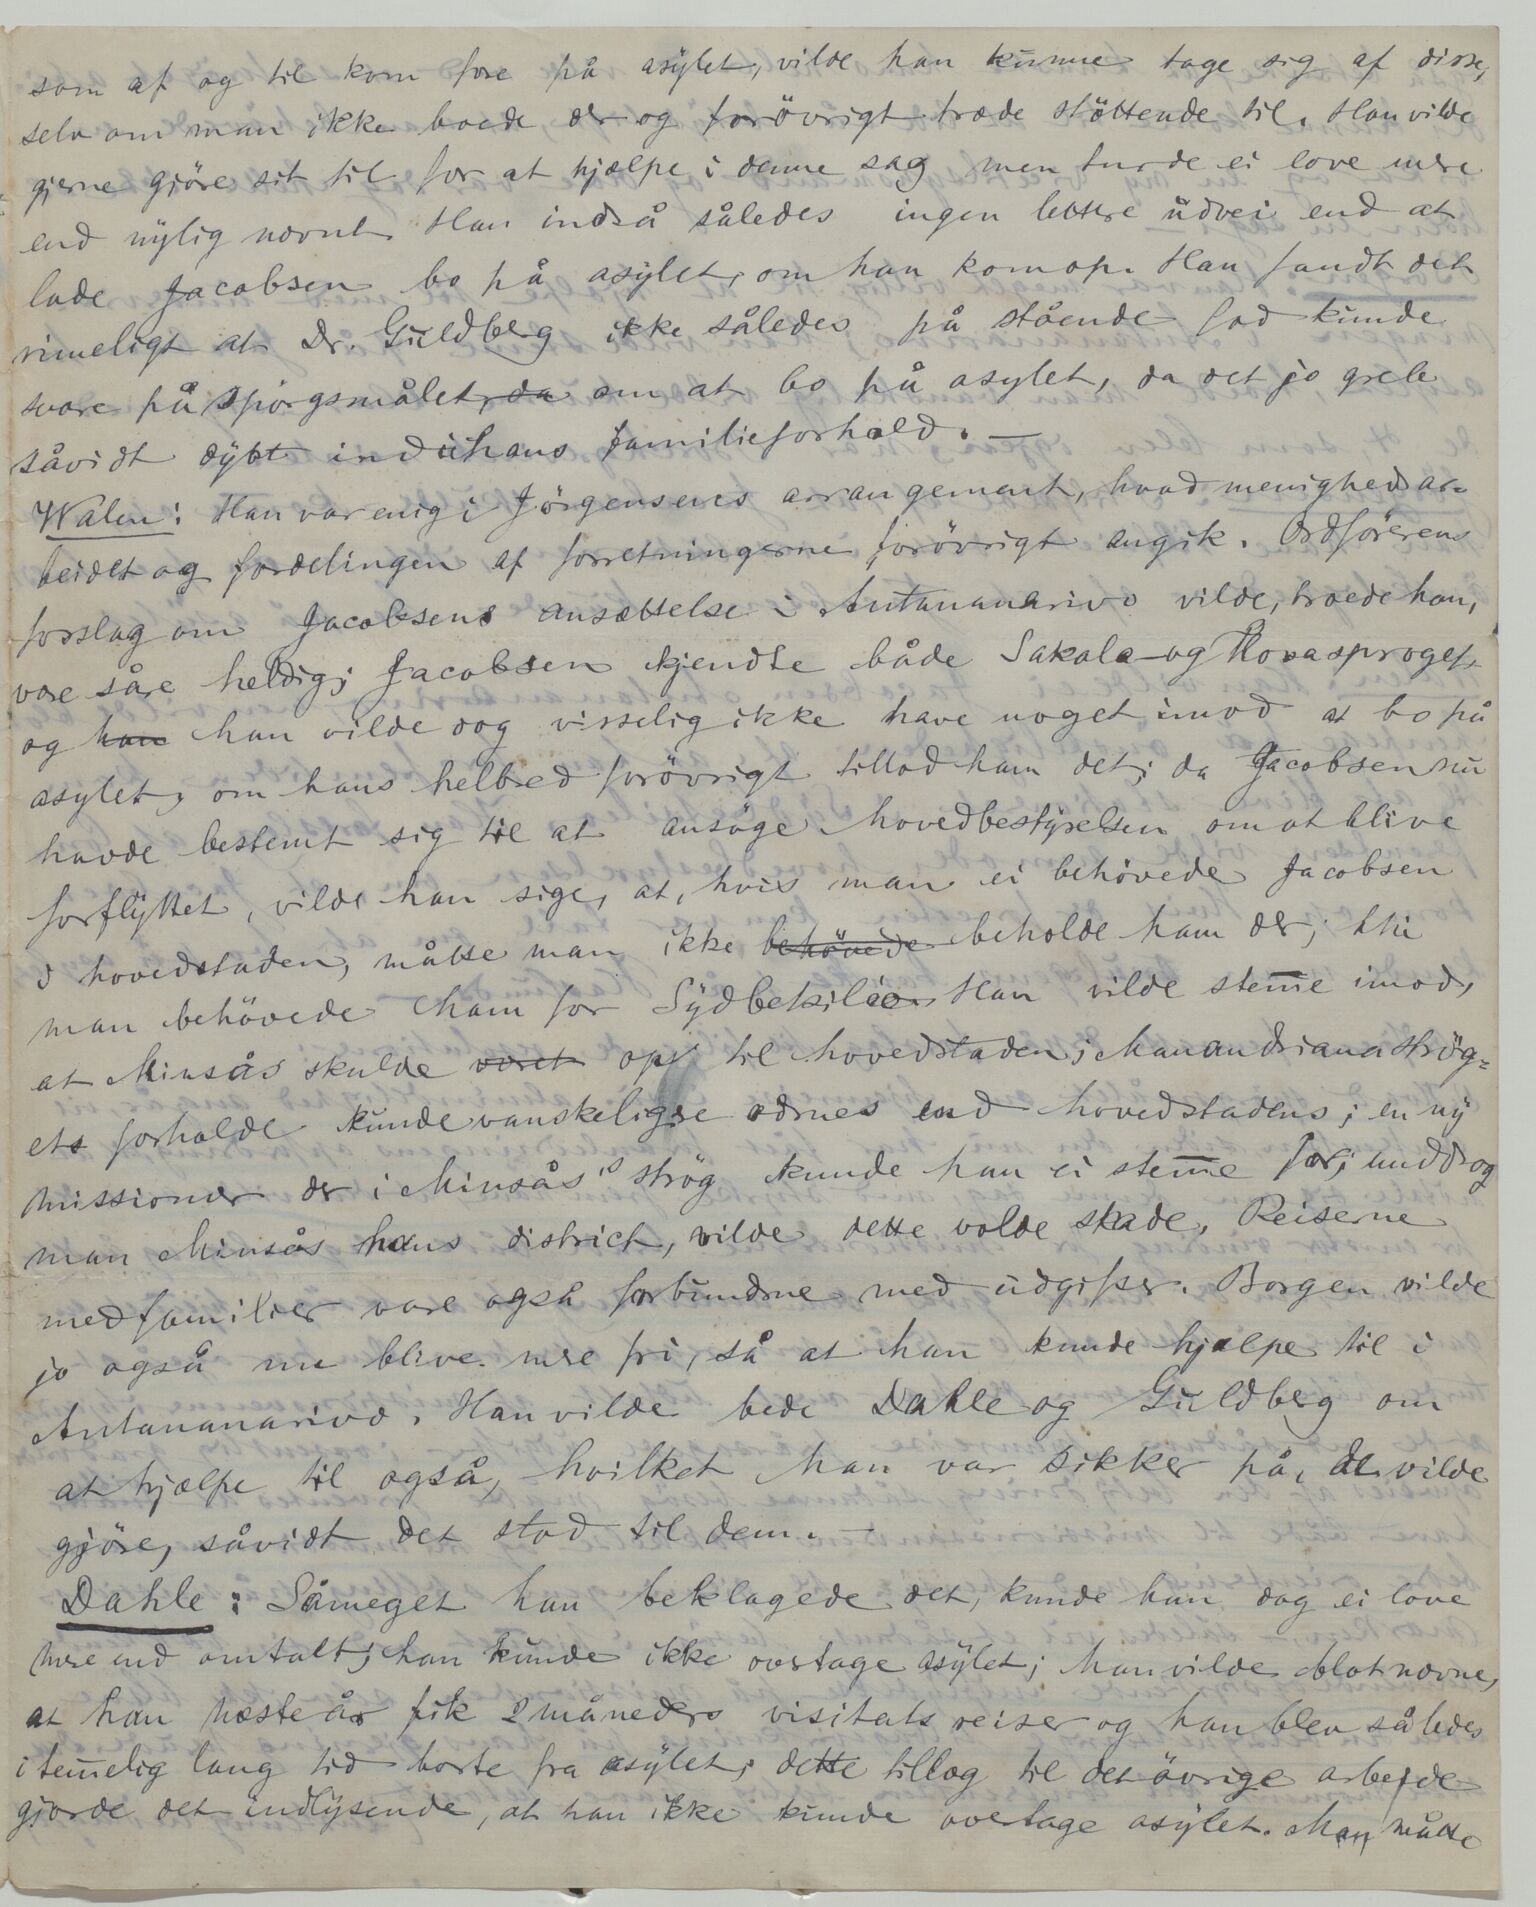 som af og til kom fore på asylet, vilde han kunne tage sig af disse,
selv om man ikke boede der og forövrigt træde stöttende til. Han vilde
gjerne gjöre sit til for at hjælpe i denne sag men turde ei love mere
end nylig nævnt. Han indså således ingen lettere udvei end at
lade Jacobsen bo på asylet, om han kom op. Han fandt det
rimeligt at Dr. Guldberg ikke således på stående fod kunde
svare på spörgsmålet, da om at bo på asylet, da det jo greb
såvidt dybt ind i hans familieforhold. —
Walen: Han var enig i Jörgensens arrangement, hvad menighedsar-
beidet og fordelingen af forretningerne forövrigt angik. Ordförerens
forslag om Jacobsens ansættelse i Antananarivo vilde, troede han,
være såre heldig; Jacobsen kjendte både Sakala- og Hovasproget
og han han vilde dog visselig ikke have noget imod at bo på
asylet, om hans helbred forövrigt tillod ham det; da Jacobsen nu
havde bestemt sig til at ansöge hovedbestyrelsen om at blive
forflyttet, vilde han sige, at, hvis man ei behövede Jacobsen
i hovedstaden, måtte man ikke behövede beholde ham der; thi
man behövede ham for Sydbetsileo. Han vilde stem̄e imod,
at Minsås skulde været op til hovedstaden; Manandriana strög-
ets forholde kunde vanskeligere ordnes end hovedstadens; en ny
missionær der i Minsås's strög kunde han ei stem̄e for; unddrog
man Minsås hans district, vilde dette volde skade. Reiserne
med familier vare også forbundne med udgifter. Borgen vilde
jo også nu blive mere fri, så at han kunde hjælpe til i
Antananarivo. Han vilde bede Dahle og Guldberg om
at hjælpe til også, hvilket han var sikker på, de vilde
gjöre, såvidt det stod til dem. —
Dahle: Såmeget han beklagede det, kunde han dog ei love
mere end omtalt; han kunde ikke overtage asylet; han vilde blot nævne,
at han næste år fik 2 måneders visitatsreiser og han blev således
i tem̄elig lang tid borte fra asylet; dette tillæg til det övrige arbejde
gjorde det indlysende, at han ikke kunde overtage asylet. Man måtte